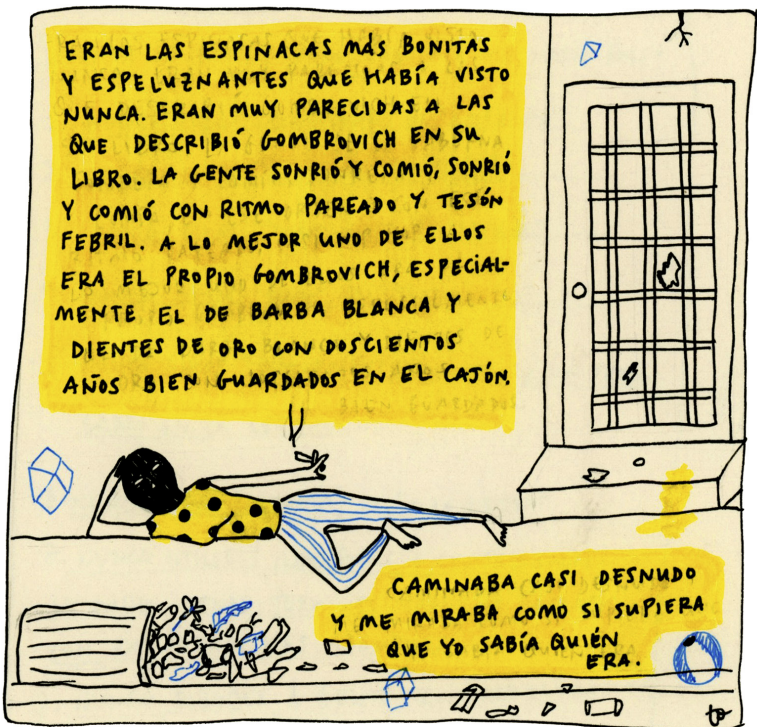 ERAN LAS ESPINACAS MÁS BONITAS
Y ESPELUZNANTES QUE HABÍA VISTO
NUNCA. ERAN MUY PARECIDAS A LAS
QUE DESCRIBIÓ GOMBROVICH EN SU
LIBRO. LA GENTE SONRIÓ Y COMIÓ, SONRIÓ
Y COMIÓ CON RITMO PAREADO Y TESÓN
FEBRIL. A LO MEJOR UNO DE ELLOS
ERA EL PROPIO GOMBROVICH, ESPECIAL-
MENTE EL DE BARBA BLANCA Y
DIENTES DE ORO CON DOSCIENTOS
AÑOS BIEN GUARDADOS EN EL CAJÓN.
CAMINABA CASI DESNUDO
Y ME MIRABA COMO SI SUPIERA
QUE YO SABÍA QUIÉN
ERA.